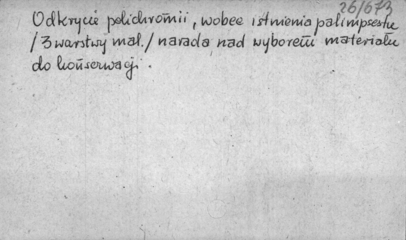 26/673
Odkrycie polichromii, wobec istnienia palimpsestu
/3 warstwy mal./ narada nad wyborem materiału
do konserwacji.